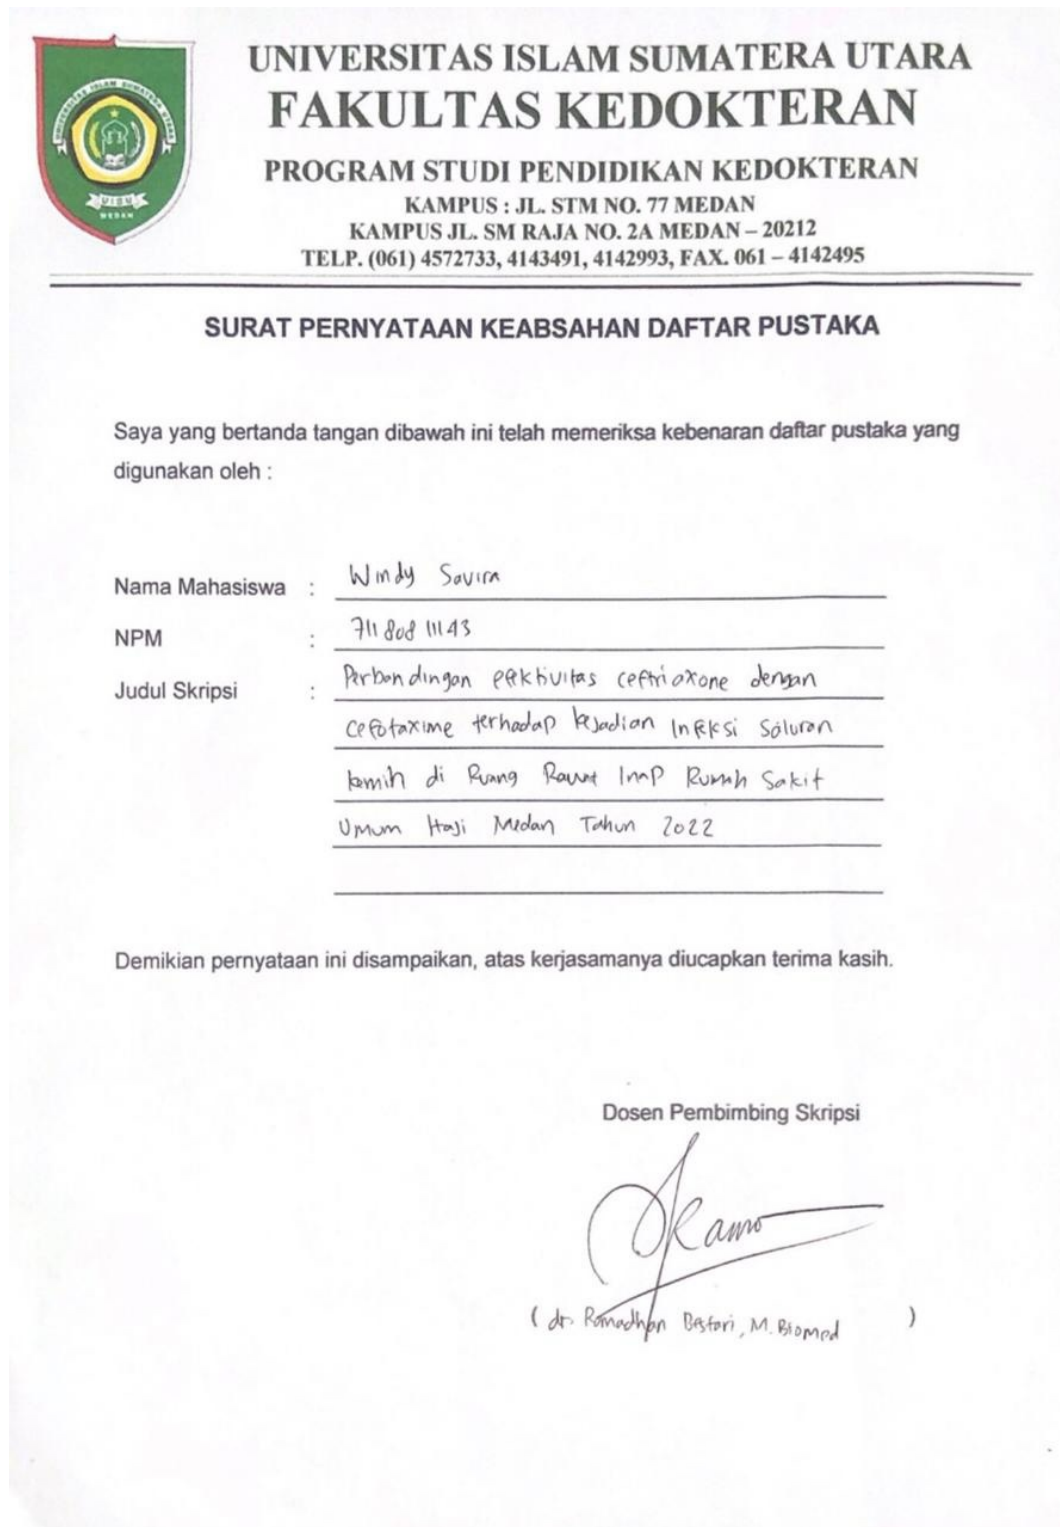 UNIVERSITAS ISLAM SUMATERA UTARA
FAKULTAS KEDOKTERAN
PROGRAM STUDI PENDIDIKAN KEDOKTERAN
KAMPUS : JL. STM NO. 77 MEDAN
KAMPUS JL. SM RAJA NO. 2A MEDAN – 20212
TELP. (061) 4572733, 4143491, 4142993, FAX. 061 – 4142495
UNIVERSITAS ISLAM SUMATERA UTARA
UISU
MEDAN
SURAT PERNYATAAN KEABSAHAN DAFTAR PUSTAKA
Saya yang bertanda tangan dibawah ini telah memeriksa kebenaran daftar pustaka yang
digunakan oleh :
Nama Mahasiswa : Windy Savira
NPM : 711 808 11143
Judul Skripsi : Perbandingan efektivitas ceftriaxone dengan
cefotaxime terhadap kejadian Infeksi Saluran
kemih di Ruang Rawat Inap Rumah Sakit
Umum Haji Medan Tahun 2022
Demikian pernyataan ini disampaikan, atas kerjasamanya diucapkan terima kasih.
Dosen Pembimbing Skripsi
( dr. Ramadhan Bestari, M. Biomed )